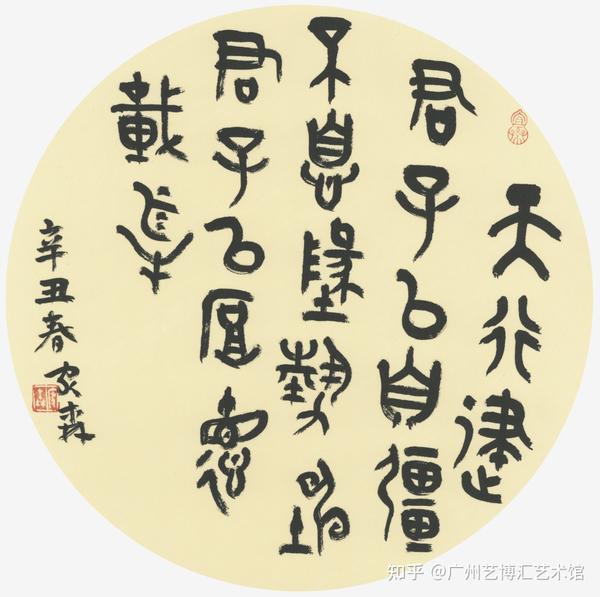 天行健
君子以自彊
不息墬勢坤
君子以厚德
載物
辛丑春家森
知乎 @广州艺博汇艺术馆